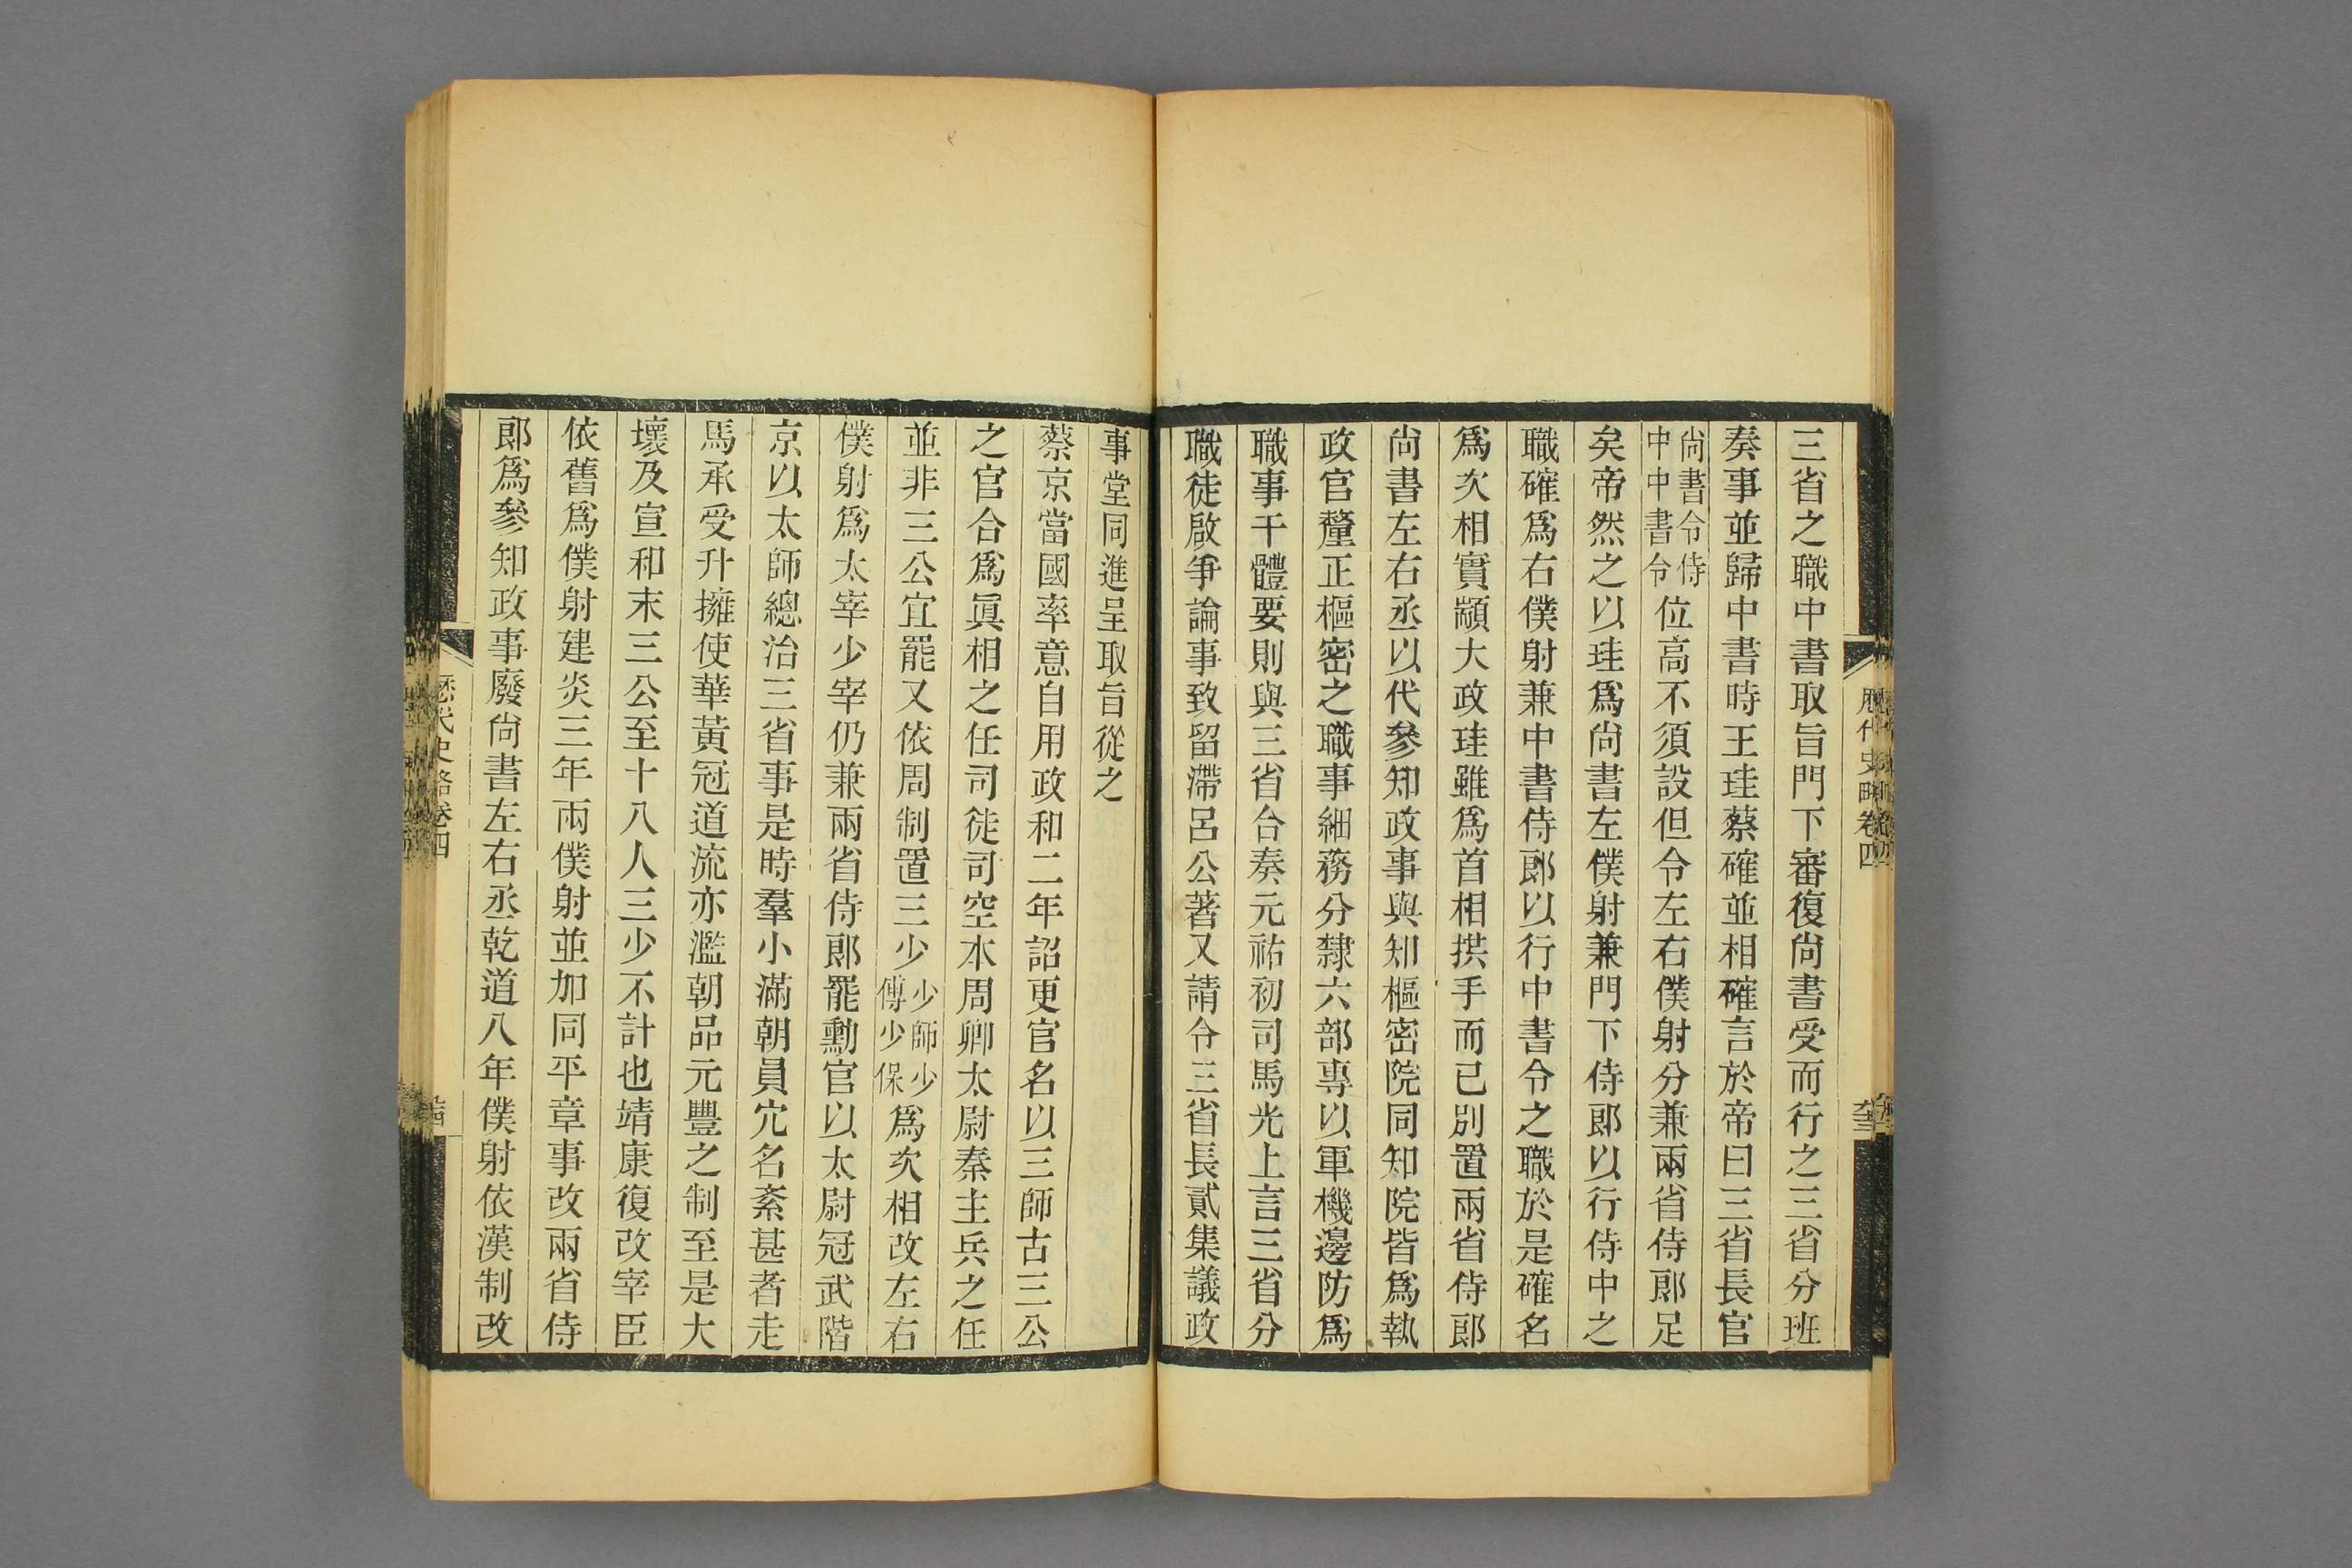 三省之職中書取旨門下審復尙書受而行之三省分班
奏事並歸中書時王珪蔡確並相確言於帝曰三省長官
尙書令侍中中書令位高不須設但令左右僕射分兼兩省侍郞足
矣帝然之以珪爲尙書左僕射兼門下侍郞以行侍中之
職確爲右僕射兼中書侍郞以行中書令之職於是確名
爲次相實顓大政珪雖爲首相拱手而已別置兩省侍郞
尙書左右丞以代參知政事與知樞密院同知院皆爲執
政官釐正樞密之職事細務分隸六部專以軍機邊防爲
職事干體要則與三省合奏元祐初司馬光上言三省分
職徒啟爭論事致留滯呂公著又請令三省長貳集議政
事堂同進呈取旨從之
蔡京當國率意自用政和二年詔更官名以三師古三公
之官合爲眞相之任司徒司空本周卿太尉秦主兵之任
並非三公宜罷又依周制置三少少師少傅少保爲次相改左右
僕射爲太宰少宰仍兼兩省侍郞罷勳官以太尉冠武階
京以太師總治三省事是時羣小滿朝員宂名紊甚者走
馬承受升擁使華黃冠道流亦濫朝品元豐之制至是大
壞及宣和末三公至十八人三少不計也靖康復改宰臣
依舊爲僕射建炎三年兩僕射並加同平章事改兩省侍
郞爲參知政事廢尙書左右丞乾道八年僕射依漢制改
歷代史略卷四